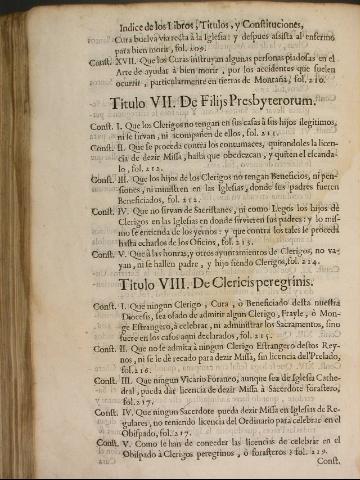 Indice de los Libros, Titulos, y Constituciones,
Cura buelva via recta à la Iglesia: y despues assista al enfermo
para bien morir, fol. 209.
Const. XVII. Que los Curas instruyan algunas personas piadosas en el
Arte de ayudar à bien morir, por los accidentes que suelen
ocurrir, particularmente en tierras de Montaña, fol. 210.
Titulo VII. De Filijs Presbyterorum.
Const. I. Que los Clerigos no tengan en sus casas à sus hijos ilegitimos,
ni se sirvan, ni acompañen de ellos, fol. 211.
Const. II. Que se proceda contra los contumaces, quitandoles la licen-
cia de dezir Missa, hasta que obedezcan, y quiten el escanda-
lo, fol. 212.
Const. III. Que los hijos de los Clerigos no tengan Beneficios, ni pen-
siones, ni ministren en las Iglesias, donde sus padres fueren
Beneficiados, fol. 212.
Const. IV. Que no sirvan de Sacristanes, ni como Legos los hijos de
Clerigos en las Iglesias en donde sirvieren sus padres: y lo mis-
mo se entienda de los yernos: y que contra los tales se proceda
hasta echarlos de los Oficios, fol. 213.
Const. V. Que à las honras, y otros ayuntamientos de Clerigos, no va-
yan, ni se hallen padre, y hijo siendo Clerigos, fol. 214.
Titulo VIII. De Clericis peregrinis.
Const. I. Que ningun Clerigo, Cura, ò Beneficiado desta nuestra
Diocesis, sea osado de admitir algun Clerigo, Frayle, ò Mon-
ge Estrangero, à celebrar, ni administrar los Sacramentos, sino
fuere en los casos aqui declarados, fol. 215.
Const. II. Que no se admita à ningun Clerigo Estrangero destos Rey-
nos, ni se le dè recado para dezir Missa, sin licencia del Prelado,
fol. 216.
Const. III. Que ningun Vicario Foraneo, aunque sea de Iglesia Cathe-
dral, pueda dar licencia de dezir Missa à Sacerdote forastero,
fol. 217.
Const. IV. Que ningun Sacerdote pueda dezir Missa en Iglesias de Re-
gulares, no teniendo licencia del Ordinario para celebrar en el
Obispado, fol. 217.
Const. V. Como se han de conceder las licencias de celebrar en el
Obispado à Clerigos peregrinos, ò forasteros: fol. 219.
Const.